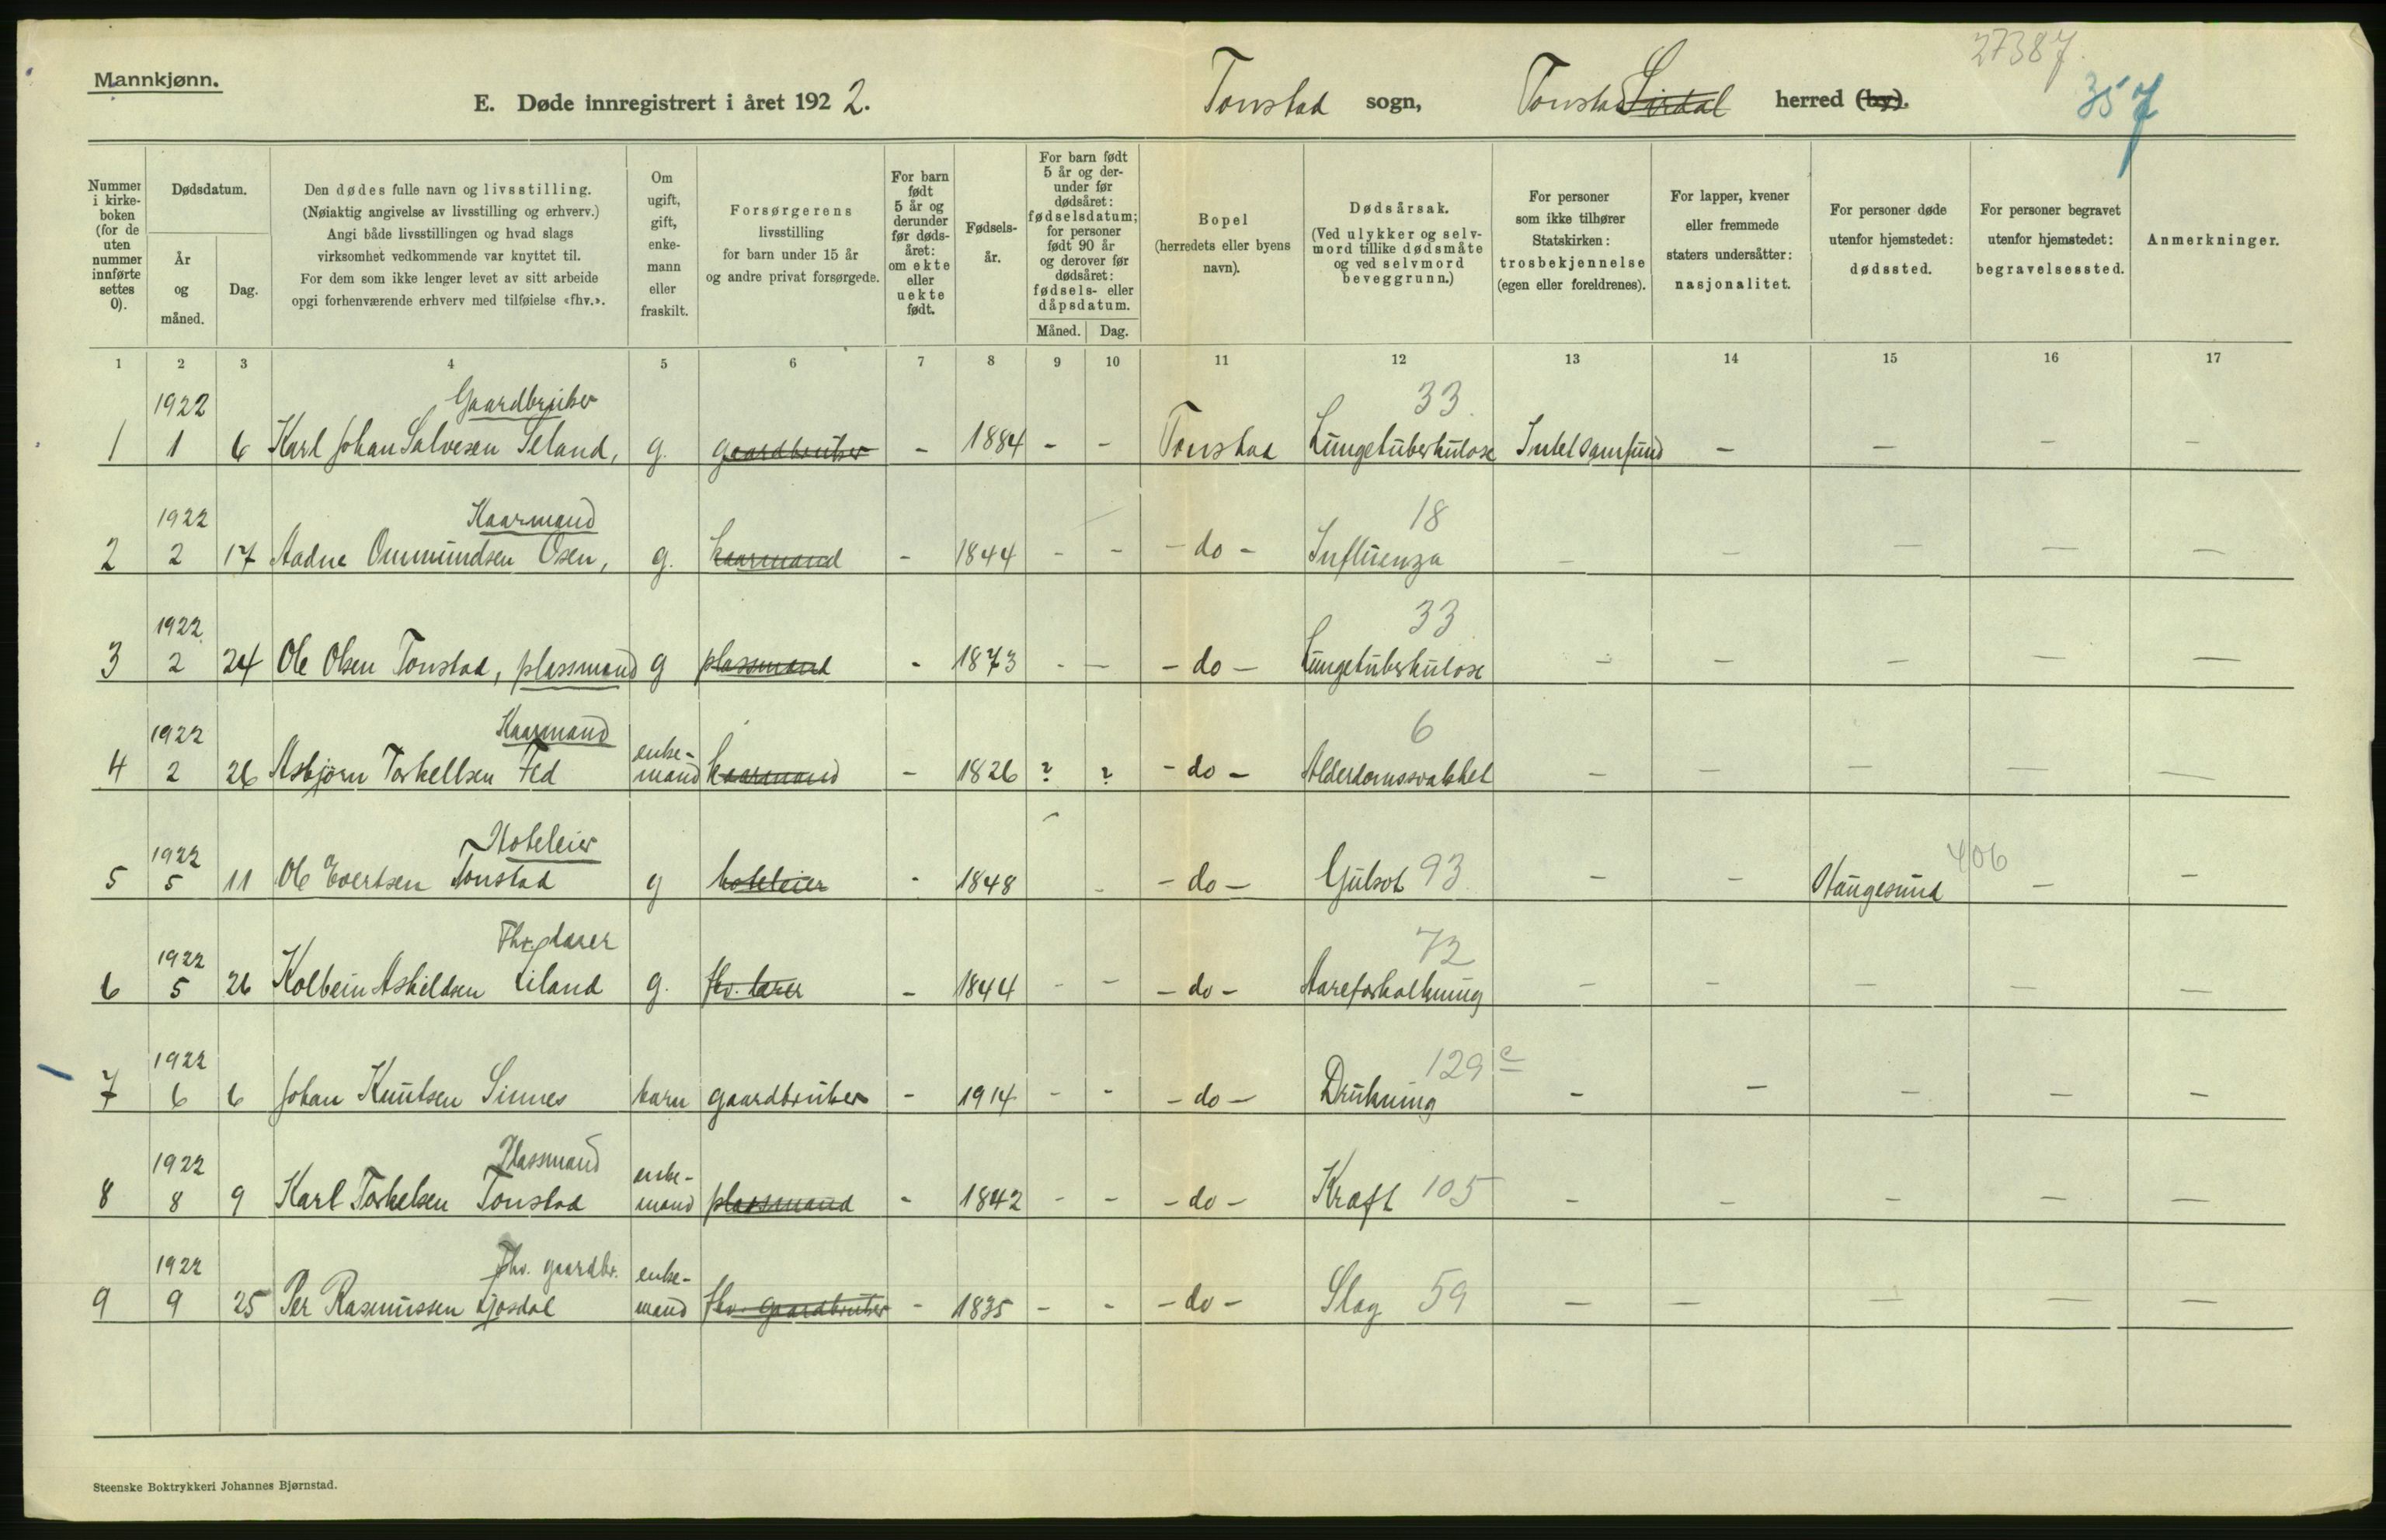 27387.
Mannkjønn.
E. Døde innregistrert i året 1922.
Tonstad sogn, Tonstad Sirdal herred (by).
357
Nummer i kirke-boken (for de uten nummer innførte settes 0).
Dødsdatum.
År og måned.
Dag.
Den dødes fulle navn og livsstilling.
(Nøiaktig angivelse av livsstilling og erhverv.)
Angi både livsstillingen og hvad slags
virksomhet vedkommende var knyttet til.
For dem som ikke lenger levet av sitt arbeide
opgi forhenværende erhverv med tilføielse «fhv.».
Om ugift, gift, enke-mann eller fraskilt.
Forsørgerens
livsstilling
for barn under 15 år
og andre privat forsørgede.
For barn født 5 år og derunder før døds-året: om ekte eller uekte født.
Fødsels-år.
For barn født 5 år og der-under før dødsåret: fødselsdatum; for personer født 90 år og derover før dødsåret: fødsels- eller dåpsdatum.
Måned. Dag.
Bopel
(herredets eller byens
navn).
Dødsårsak.
(Ved ulykker og selv-mord tillike dødsmåte og ved selvmord beveggrunn.)
For personer
som ikke tilhører
Statskirken:
trosbekjennelse
(egen eller foreldrenes).
For lapper, kvener
eller fremmede
staters undersåtter:
nasjonalitet.
For personer døde
utenfor hjemstedet:
dødssted.
For personer begravet
utenfor hjemstedet:
begravelsessted.
Anmerkninger.
1 2 3 4 5 6 7 8 9 10 11 12 13 14 15 16 17
1922 Gaardbruker 33
1 1 6 Karl Johan Salvesen Seland, g. gaardbruker - 1884 - - Tonstad Lungetuberkulose Intet samfund - - - -
1922 Kaarmand 18
2 2 17 Aadne Ommundsen Osen, g. kaarmand - 1844 - - - do - Influenza - - - - -
1922 33
3 2 24 Ole Olsen Tonstad, plassmand g plassmand - 1873 - - - do - Lungetuberkulose - - - - -
1922 Kaarmand enke- 6
4 2 26 Asbjørn Torkellsen Fed mand kaarmand - 1826 ? ? - do - Alderdomssvakhet - - - - -
1922 Hoteleier 406
5 5 11 Ole Evertsen Tonstad g hoteleier - 1848 - - do - Gulsot 93 - - Haugesund - -
1922 Fhv. lærer 72
6 5 26 Kolbein Askildsen Eiland g. fhv. lærer - 1844 - - - do - Aareforkalkning - - - - -
1922 129 c
7 6 6 Johan Knutsen Sinnes barn gaardbruker - 1914 - - - do - Drukning - - - - -
1922 Plassmand enke-
8 8 9 Karl Torkelsen Tonstad mand plassmand - 1842 - - - do - Kræft 105 - - - - -
1922 Fhv. gaardbr. enke-
9 9 25 Per Rasmussen Kjosdal mand fhv. gaardbruker - 1835 - - - do - Slag 59 - - - - -
Steenske Boktrykkeri Johannes Bjørnstad.